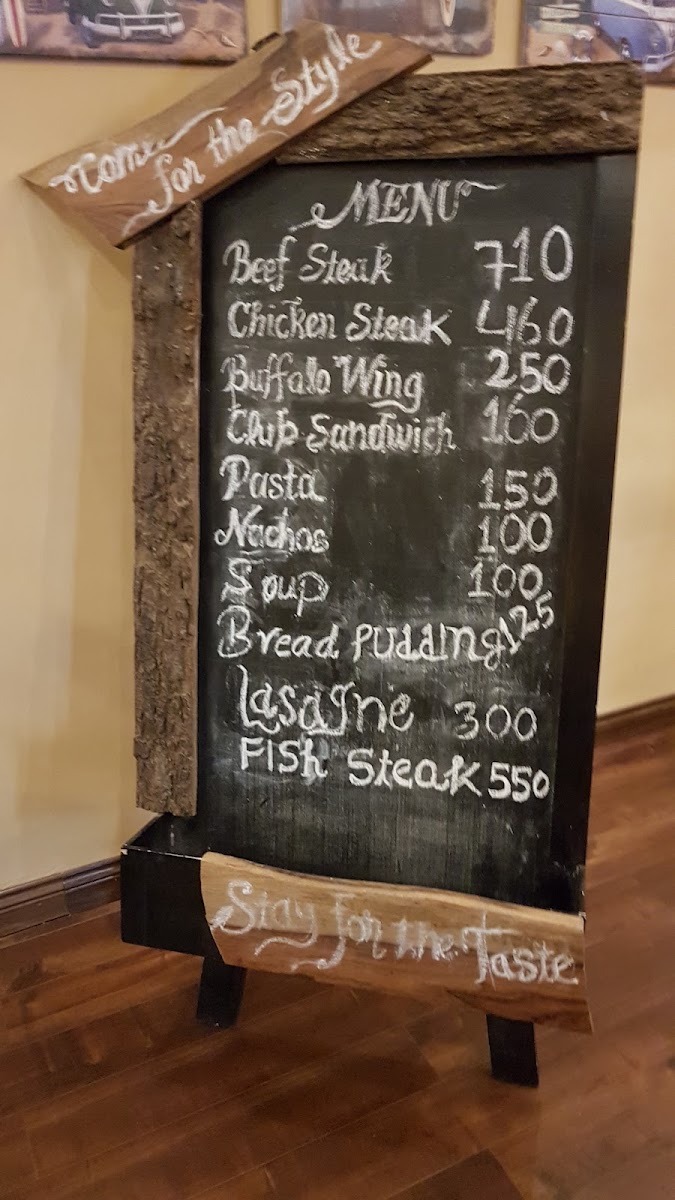 Come
for the Style
MENU
Beef Steak 710
Chicken Steak 460
Buffalo Wing 250
Club Sandwich 160
Pasta 150
Nachos 100
Soup 100
Bread Pudding 125
Lasagne 300
FISh Steak 550
Stay for the Taste